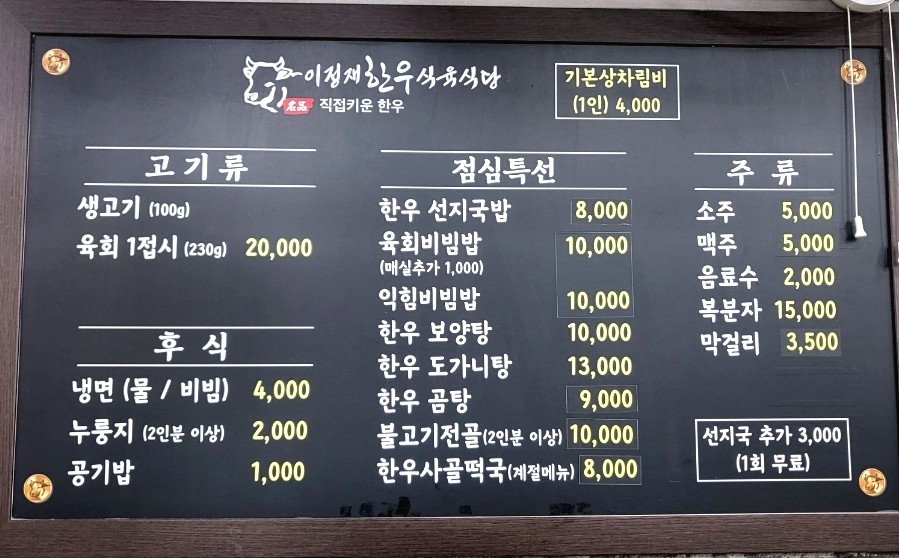 이정재한우식육식당
名品 직접키운 한우
기본상차림비
(1인) 4,000
고기류
생고기 (100g)
육회 1접시 (230g) 20,000
후식
냉면 (물 / 비빔) 4,000
누룽지 (2인분 이상) 2,000
공기밥 1,000
점심특선
한우 선지국밥 8,000
육회비빔밥 10,000
(매실추가 1,000)
익힘비빔밥 10,000
한우 보양탕 10,000
한우 도가니탕 13,000
한우 곰탕 9,000
불고기전골(2인분 이상) 10,000
한우사골떡국(계절메뉴) 8,000
주류
소주 5,000
맥주 5,000
음료수 2,000
복분자 15,000
막걸리 3,500
선지국 추가 3,000
(1회 무료)